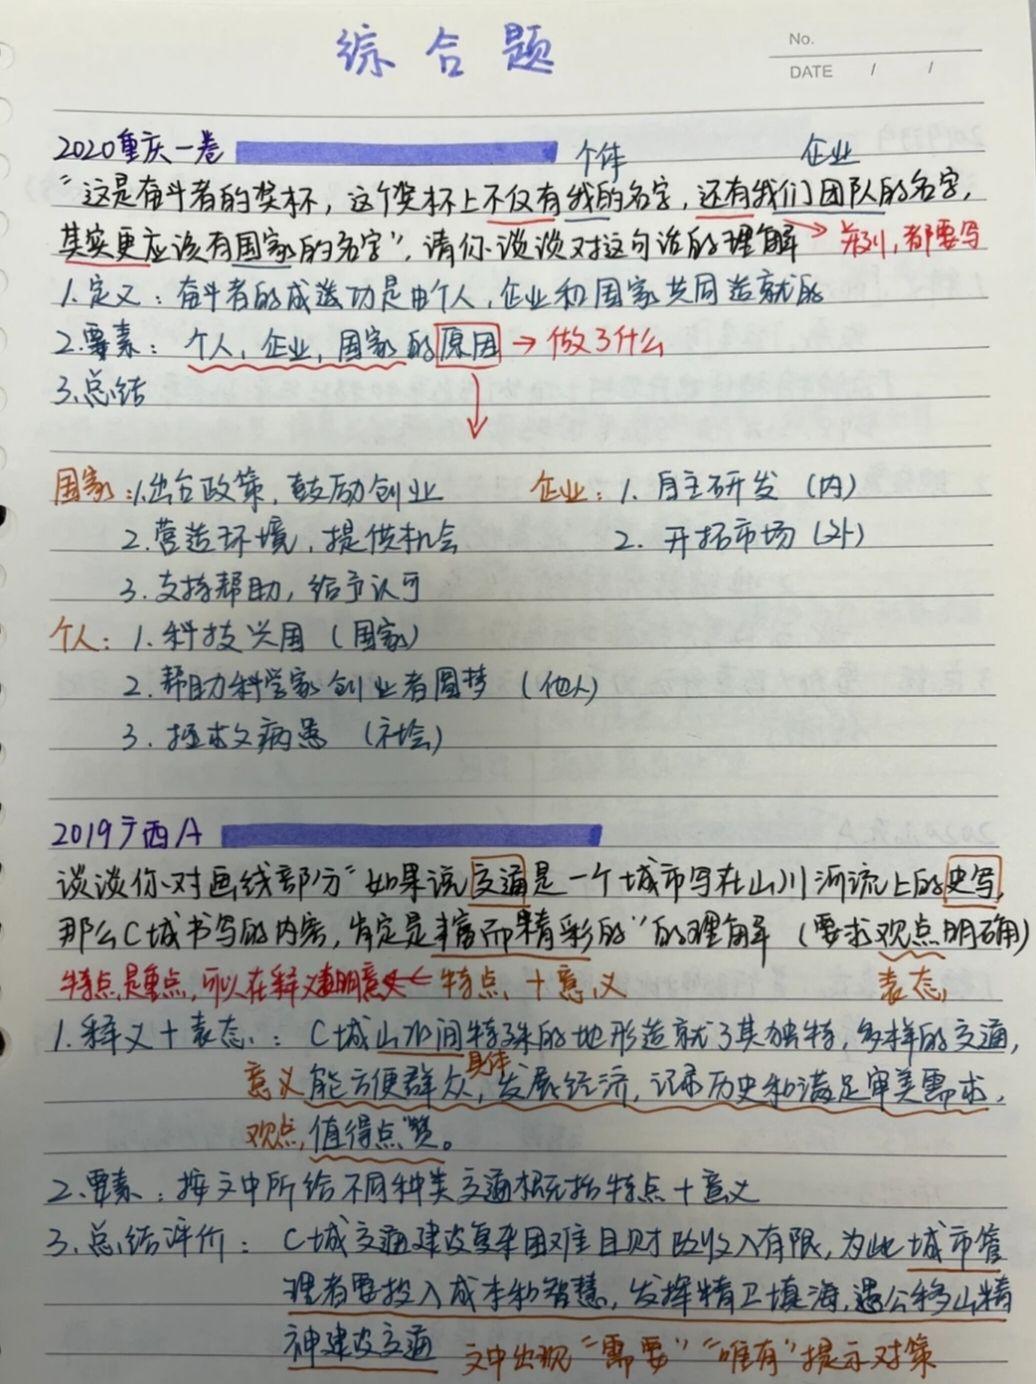 综合题
No.
DATE / /
2020重庆一卷
个体 企业
"这是奋斗者的奖杯，这个奖杯上不仅有我的名字，还有我们团队的名字，
其实更应该有国家的名字"，请你谈谈对这句话的理解 → 并列，都要写
1.定义：奋斗者的成功是由个人，企业和国家共同造就的
2.要素：个人，企业，国家的原因→做了什么
3.总结
国家：1.出台政策，鼓励创业 企业：1.自主研发（内）
2.营造环境，提供机会 2.开拓市场（外）
3.支持帮助，给予认可
个人：1.科技兴国（国家）
2.帮助科学家创业者圆梦（他人）
3.拯救病患（社会）
2019广西A
谈谈你对画线部分"如果说交通是一个城市写在山川河流上的史写，
那么C城书写的内容，肯定是丰富而精彩的"的理解（要求观点明确）
特点是重点，可以在释义表明意义←特点＋意义 表态
1.释义＋表态：C城山水间特殊的地形造就了其独特，多样的交通，
具体
意义 能方便群众，发展经济，记录历史和满足审美需求，
观点，值得点赞。
2.要素：按文中所给不同种类交通概括特点＋意义
3.总结评价：C城交通建设复杂困难且财政收入有限，为此城市管
理者要投入成本和智慧，发挥精卫填海，愚公移山精
神建设交通 文中出现"需要""唯有"提示对策